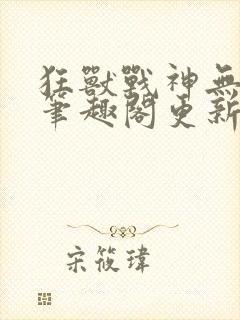 狂獸戰神無
筆趣閣更新
宋筱瑋